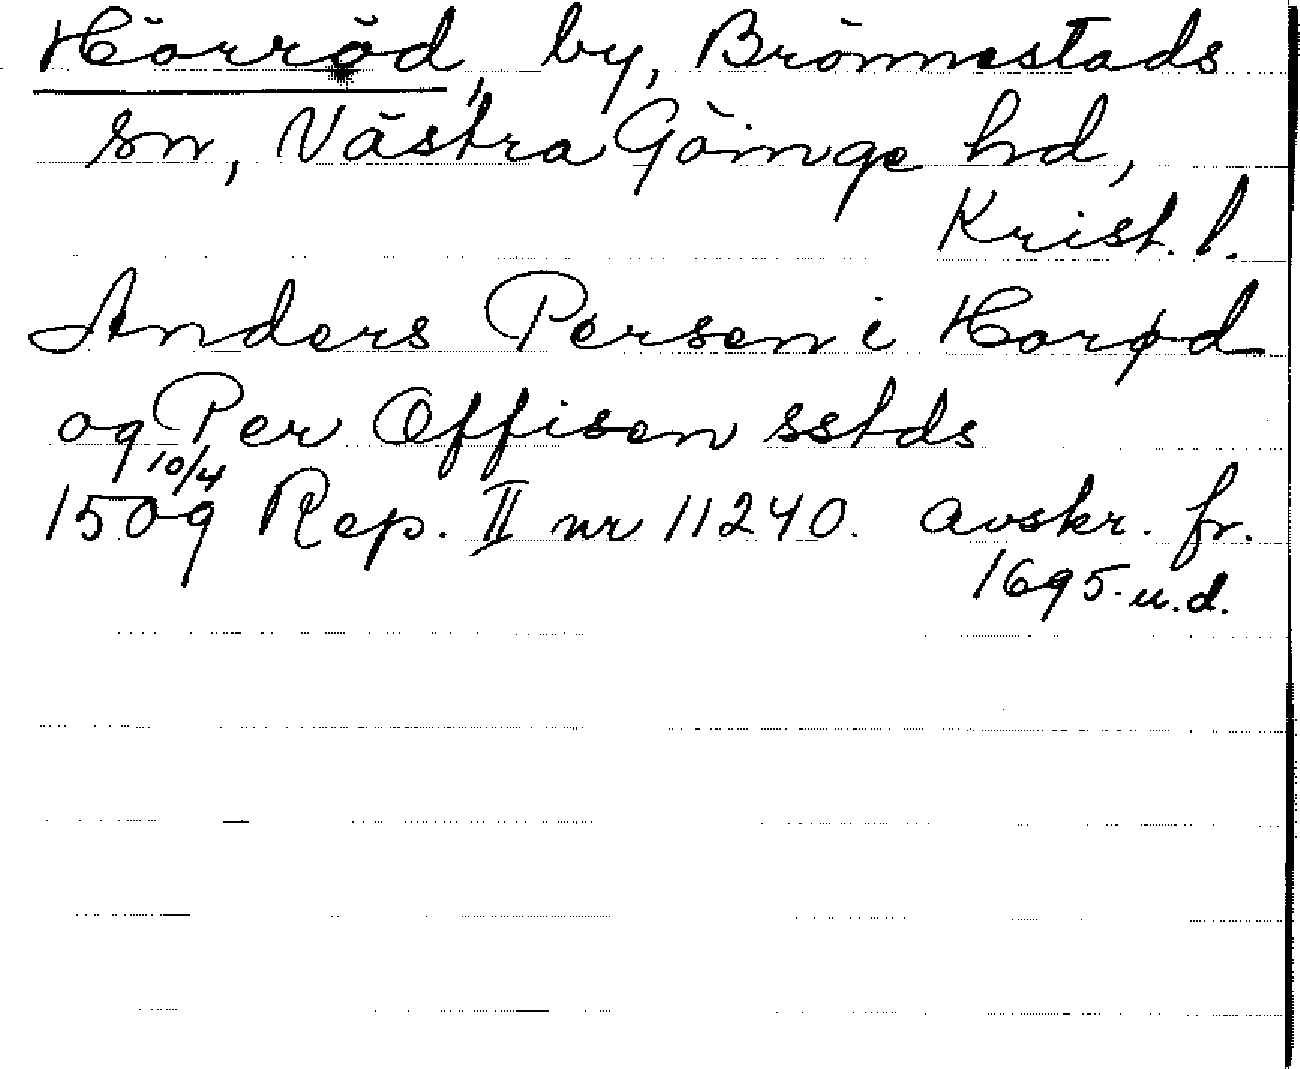 Hörröd, by, Brönnestads
sn, Västra Göinge hd,
Krist. l.
Anders Persen i Horød
og Per Offisen sstds
10/4
1509 Rep. II nr 11240. avskr. fr.
1695 u.d.